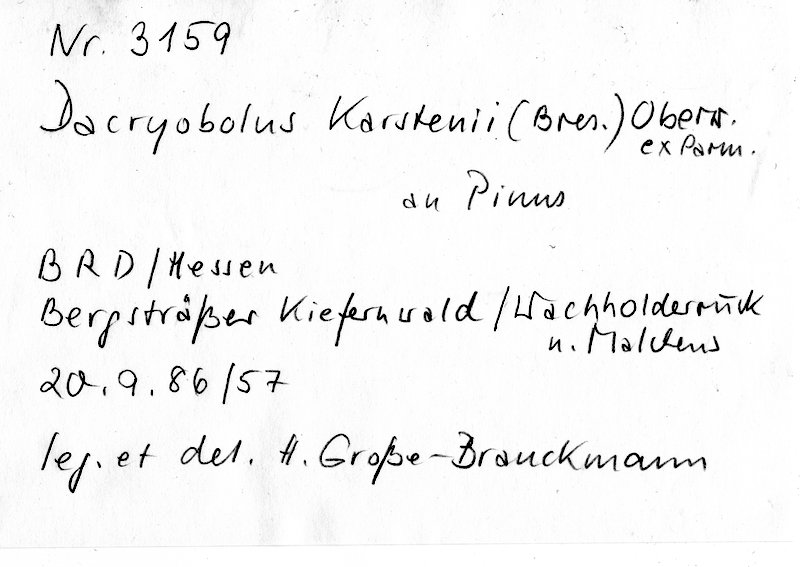 Nr. 3159
Dacryobolus Karstenii (Bres.) Oberw.
ex Parm.
an Pinus
BRD/Hessen
Bergsträßer Kiefernwald/Wachholder
n. Malchens
20.9.86/57
leg. et det. H. Große-Brauckmann